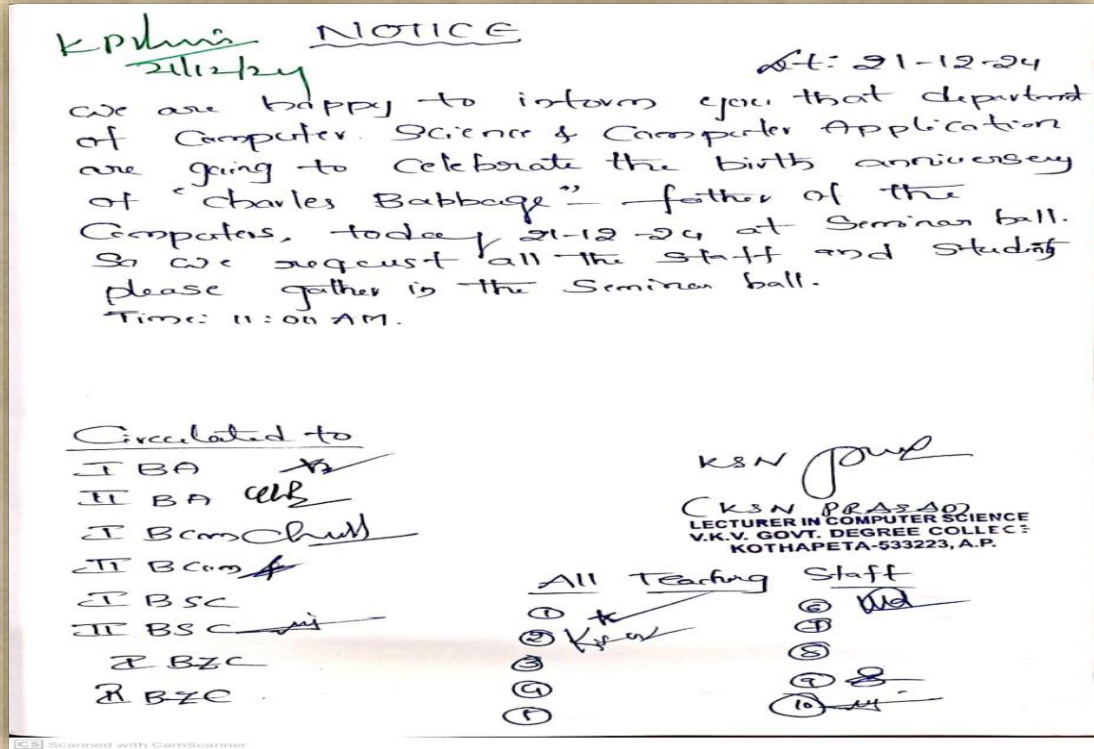 NOTICE
21/12/24
Dt: 21-12-24
We are happy to inform you that department
of Computer Science & Computer Application
are going to celebrate the birth anniversery
of "Charles Babbage" - father of the
Computers, today 21-12-24 at Seminar hall.
So we request all the staff and students
please gather in the Seminar hall.
Time: 11:00 AM.
Circulated to
I BA
II BA
I BCom
II BCom
I BSC
II BSC
I BZC
II BZC
KSN
(KSN PRASAD)
LECTURER IN COMPUTER SCIENCE
V.K.V. GOVT. DEGREE COLLEGE
KOTHAPETA-533223, A.P.
All Teaching Staff
① ⑥
② ⑦
③ ⑧
④ ⑨
⑤ ⑩
CS Scanned with CamScanner